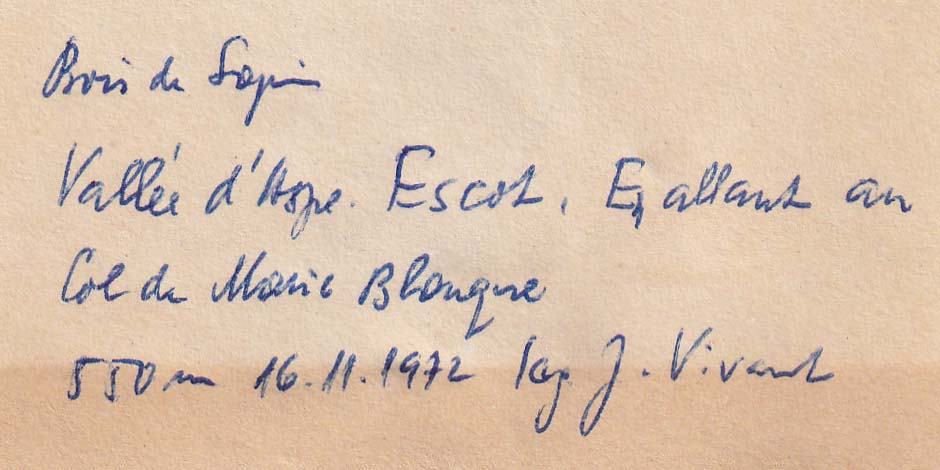 Bois de Sapin
Vallée d'Aspe. Escot. En allant au
Col de Marie Blanque
550 m 16.11.1972 leg J. Vivant